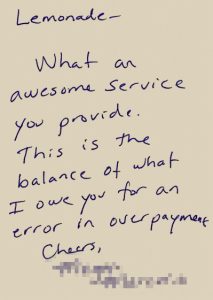 Lemonade-
What an
awesome service
you provide.
This is the
balance of what
I owe you for an
error in overpayment
Cheers,